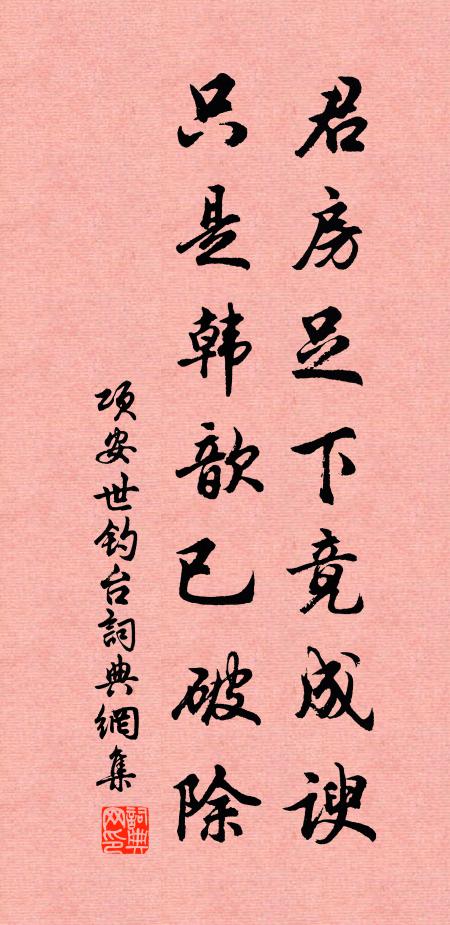 君房足下竟成谀
只是韩歆已破除
项安世钓台詞典網集
詞典
网印